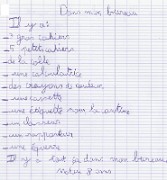 Dans mon bureau
Il y a :
_ 3 gros cahiers
_ 5 petits cahiers
_ de la colle
_ une calculatrice
_ des crayons de couleur
_ une
_ une étiquette pour la cantine
_ un classeur
_ un rapporteur
_ une équerre
Il y a tout ça dans mon bureau
8 ans